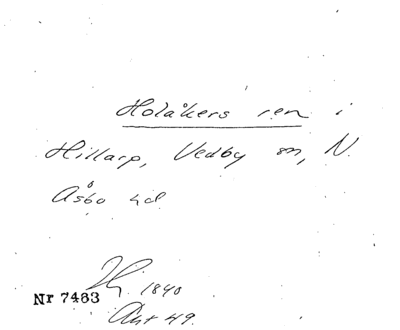 Holåkers ren i
Hillarp, Vedby sn, N.
Åsbo hd
1840
Nr 7483
Akt 49.